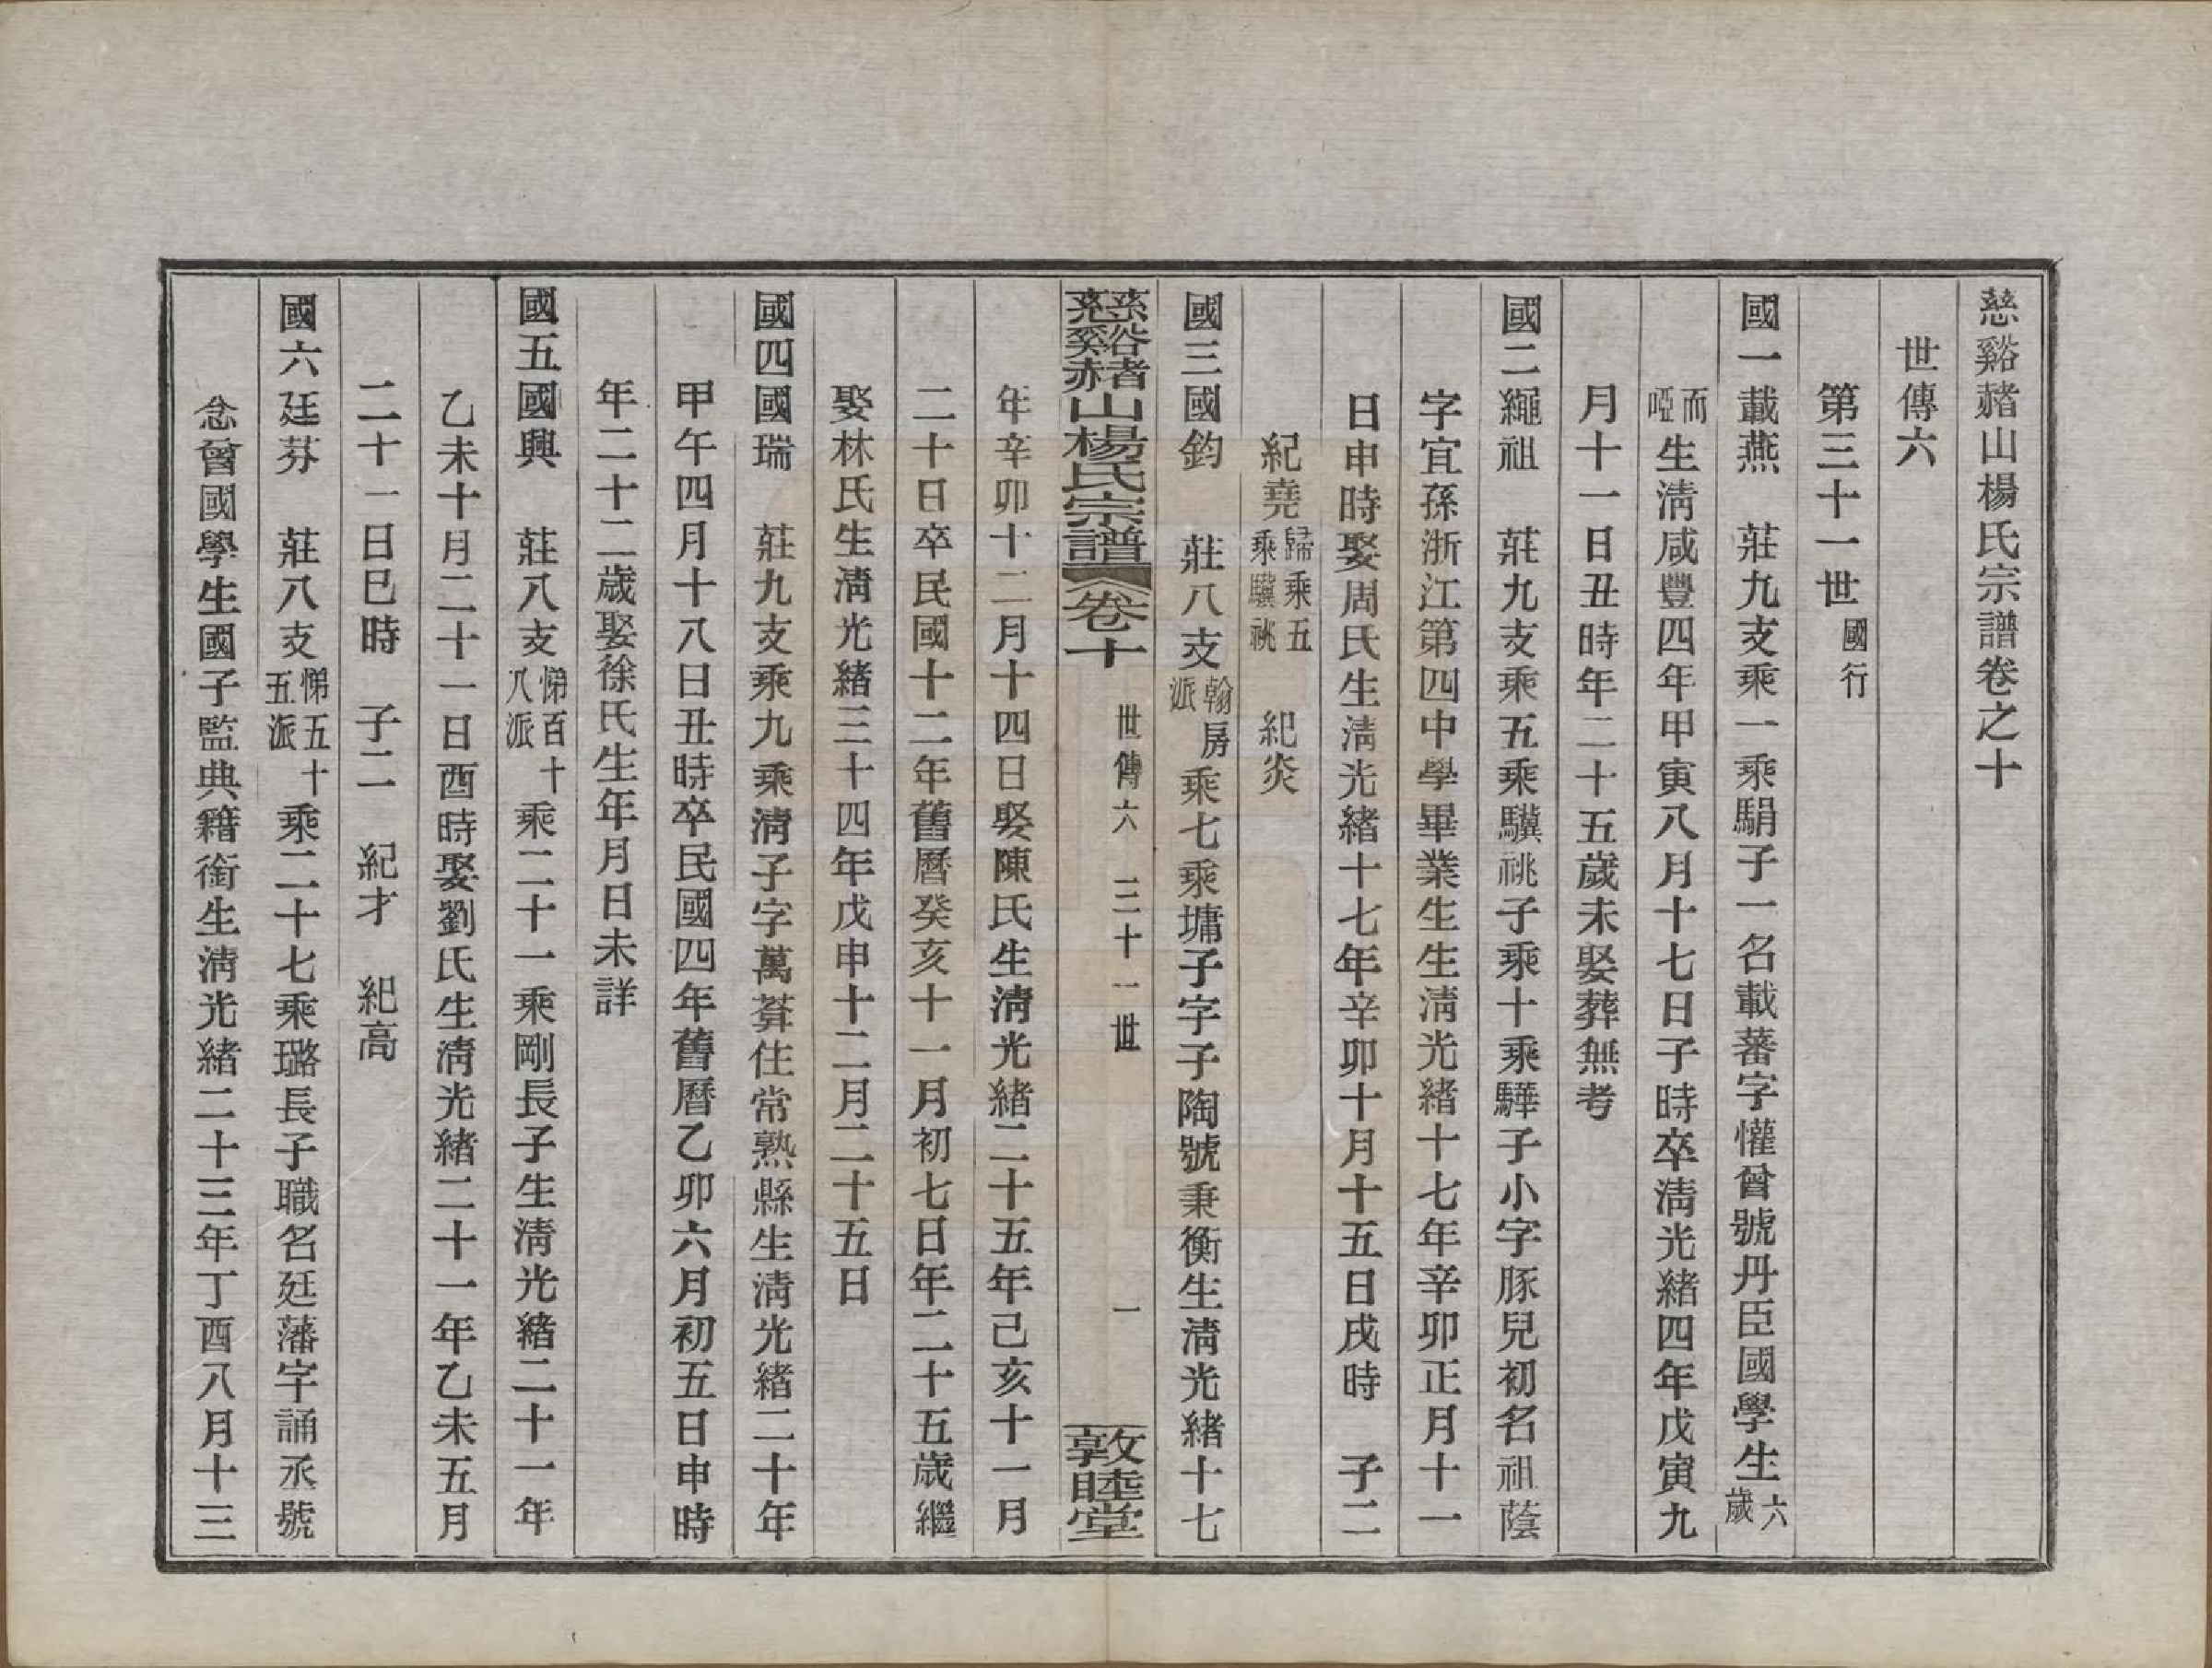 慈谿赭山楊氏宗譜卷之十
世傳六
第三十一世國行
國一載燕　莊九支乘一乘駽子一名載蕃字懽曾號丹臣國學生六歲
而啞生淸咸豐四年甲寅八月十七日子時卒淸光緒四年戊寅九
月十一日丑時年二十五歲未娶葬無考
國二繩祖　莊九支乘五乘驥祧子乘十乘驊子小字豚兒初名祖蔭
字宜孫浙江第四中學畢業生生淸光緒十七年辛卯正月十一
日申時娶周氏生淸光緒十七年辛卯十月十五日戌時　子二
紀堯歸乘五乘驥祧　紀炎
國三國鈞　莊八支翰房派乘七乘墉子字子陶號秉衡生淸光緒十七
慈谿赭山楊氏宗譜　卷十　世傳六　三十一世　一　敦睦堂
年辛卯十二月十四日娶陳氏生淸光緒二十五年己亥十一月
二十日卒民國十二年舊曆癸亥十一月初七日年二十五歲繼
娶林氏生淸光緒三十四年戊申十二月二十五日
國四國瑞　莊九支乘九乘淸子字萬葊住常熟縣生淸光緒二十年
甲午四月十八日丑時卒民國四年舊曆乙卯六月初五日申時
年二十二歲娶徐氏生年月日未詳
國五國興　莊八支悌百十八派乘二十一乘剛長子生淸光緒二十一年
乙未十月二十一日酉時娶劉氏生淸光緒二十一年乙未五月
二十一日巳時　子二　紀才　紀高
國六廷芬　莊八支悌五十五派乘二十七乘璐長子職名廷藩字誦丞號
念曾國學生國子監典籍銜生淸光緒二十三年丁酉八月十三